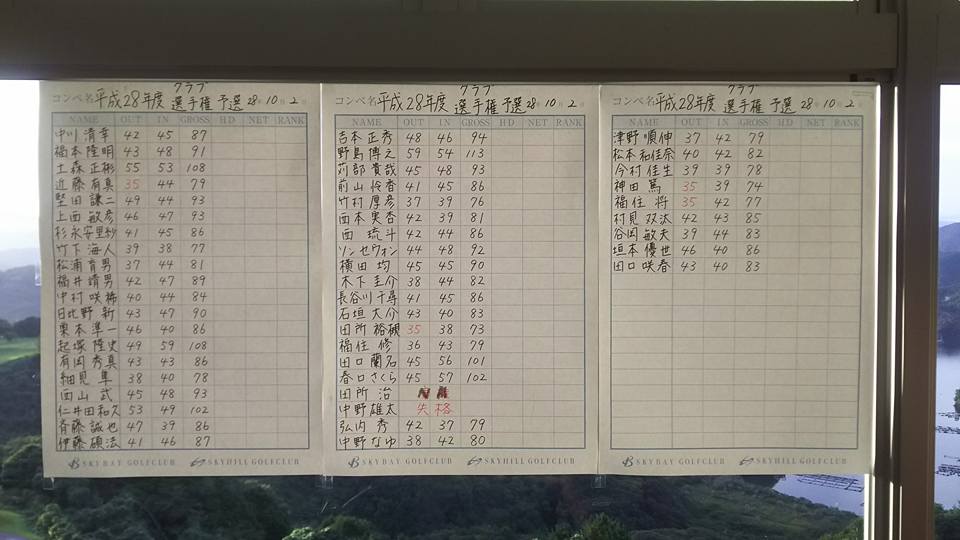 コンペ名 平成28年度 クラブ選手権 予選 28年 10月 2日
NAME OUT IN GROSS HD NET RANK
中川 清幸 42 45 87
福本 隆明 43 48 91
土森 正彬 55 53 108
近藤 有真 35 44 79
堅田 謙二 49 44 93
上西 敏彦 46 47 93
杉永 安里紗 41 45 86
竹下 海人 39 38 77
松浦 育男 37 44 81
福井 靖男 42 47 89
中村 咲稀 40 44 84
日比野 新 43 47 90
栗本 準一 46 40 86
起塚 隆史 49 59 108
有岡 秀真 43 43 86
細見 隼 38 40 78
西山 武 45 48 93
仁井田 和久 53 49 102
斉藤 誠也 47 39 86
伊藤 碩法 41 46 87
SKYBAY GOLFCLUB SKYHILL GOLFCLUB
コンペ名 平成28年度 クラブ選手権 予選 28年 10月 2日
NAME OUT IN GROSS HD NET RANK
吉本 正秀 48 46 94
野島 博之 59 54 113
苅部 貴哉 45 48 93
前山 怜香 41 45 86
竹村 厚彦 37 39 76
西本 実杏 42 39 81
西 琉斗 42 44 86
ソン セウォン 44 48 92
横田 均 45 45 90
木下 圭介 38 44 82
長谷川 千尋 41 45 86
石垣 大介 43 40 83
田所 裕槻 35 38 73
福住 修 36 43 79
田口 蘭名 45 56 101
春口 さくら 45 57 102
田所 治
中野 雄太 失格
弘内 秀 42 37 79
中野 なゆ 38 42 80
SKYBAY GOLFCLUB SKYHILL GOLFCLUB
コンペ名 平成28年度 クラブ選手権 予選 28年 10月 2日
NAME OUT IN GROSS HD NET RANK
津野 順伸 37 42 79
松本 和佳奈 40 42 82
今村 佳生 39 39 78
神田 篤 35 39 74
福住 将 35 42 77
村見 双汰 42 43 85
谷岡 敏夫 39 44 83
垣本 優世 46 40 86
田口 咲春 43 40 83
SKYBAY GOLFCLUB SKYHILL GOLFCLUB